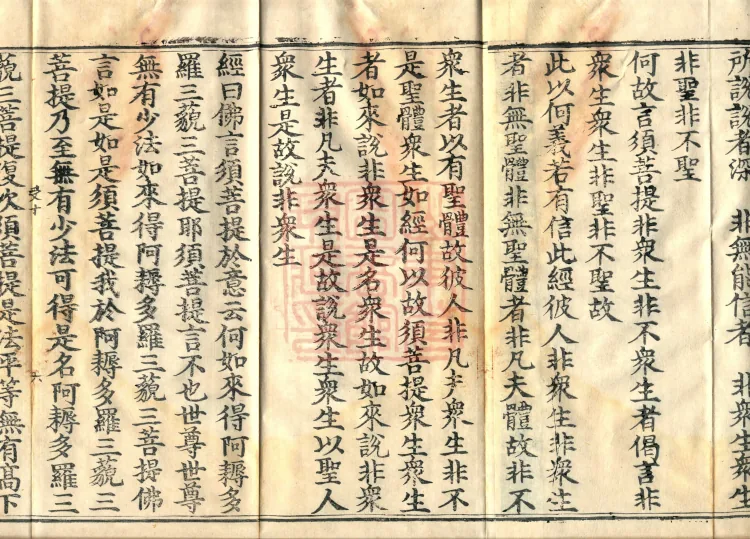 所說說者深 非無能信者 非衆生衆生
非聖非不聖
何故言須菩提非衆生非不衆生者偈言非
衆生衆生非聖非不聖故
此以何義若有信此經彼人非衆生非衆生
者非無聖體非無聖體者非凡夫體故非不
衆生者以有聖體故彼人非凡夫衆生非不
是聖體衆生如經何以故須菩提衆生衆生
者如來說非衆生是名衆生故如來說非衆
生者非凡夫衆生是故說衆生衆生以聖人
衆生是故說非衆生
經曰佛言須菩提於意云何如來得阿耨多
羅三藐三菩提耶須菩提言不也世尊世尊
無有少法如來得阿耨多羅三藐三菩提佛
言如是如是須菩提我於阿耨多羅三藐三
菩提乃至無有少法可得是名阿耨多羅三
藐三菩提復次須菩提是法平等無有髙下